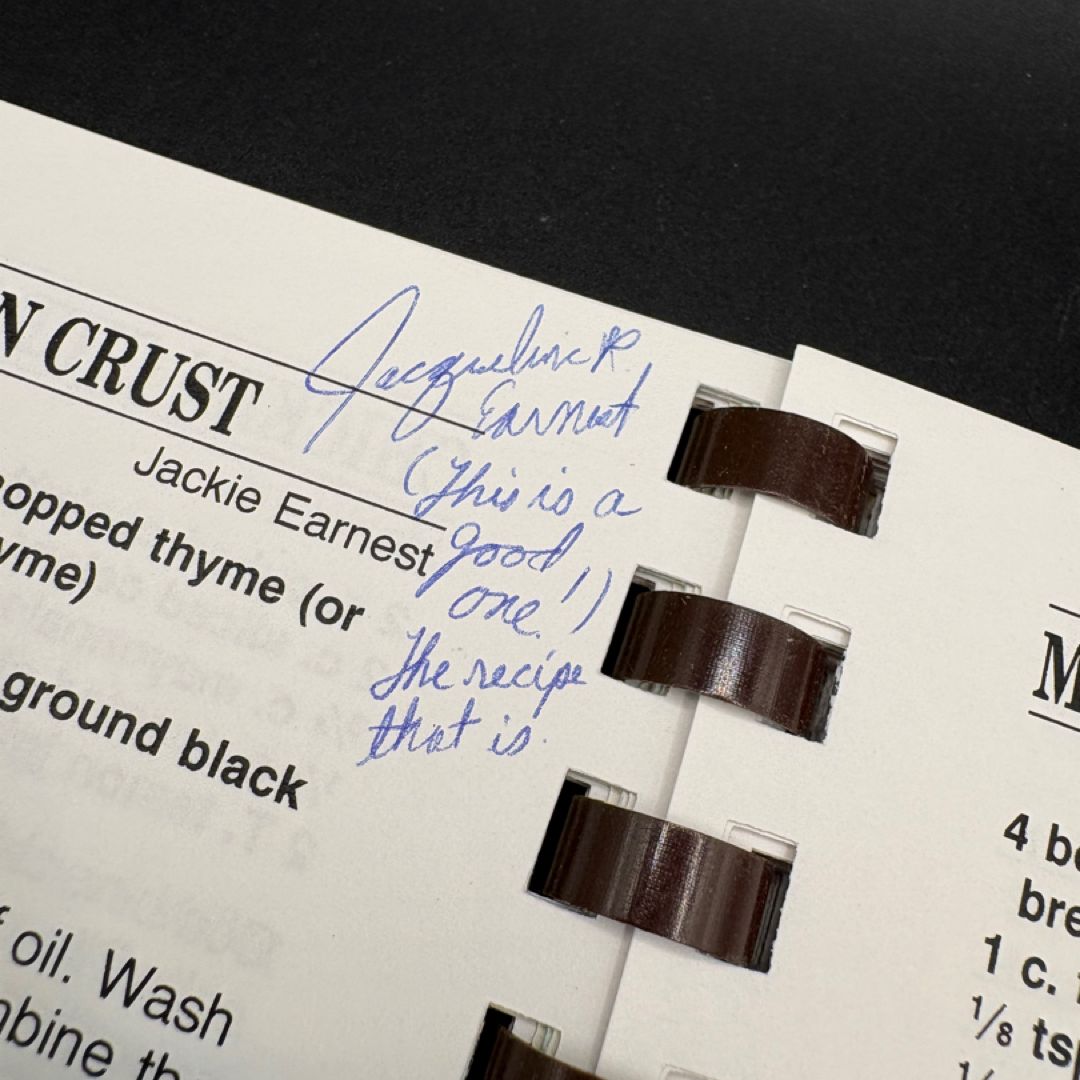 N CRUST
Jackie Earnest
opped thyme (or
yme)
ground black
oil. Wash
bine th
Jacqueline R.
Earnest
(This is a
good
one!)
The recipe
that is.
M
4 b
bre
1 c.
1/8 ts